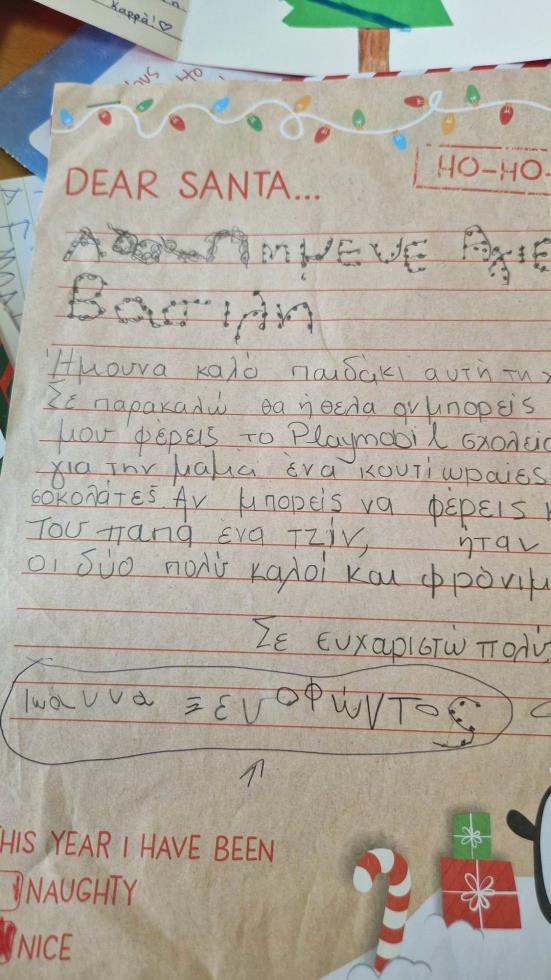 Χαρρά!
HO
DEAR SANTA...
HO-HO-
Αγαπημένε Αγιε
Βασιλη
Ήμουνα καλό παιδάκι αυτή τη χ
Σε παρακαλώ θα ήθελα αν μπορείς
μου φέρεις το Playmobil σχολείο
για την μαμά ένα κουτί ωραίες
σοκολάτες. Αν μπορείς να φέρεις κ
του παπά ένα τζίν, ήταν
οι δύο πολύ καλοί και φρόνιμ
Σε ευχαριστώ πολύ
Ιωάννα Ξενοφώντος
THIS YEAR I HAVE BEEN
NAUGHTY
NICE